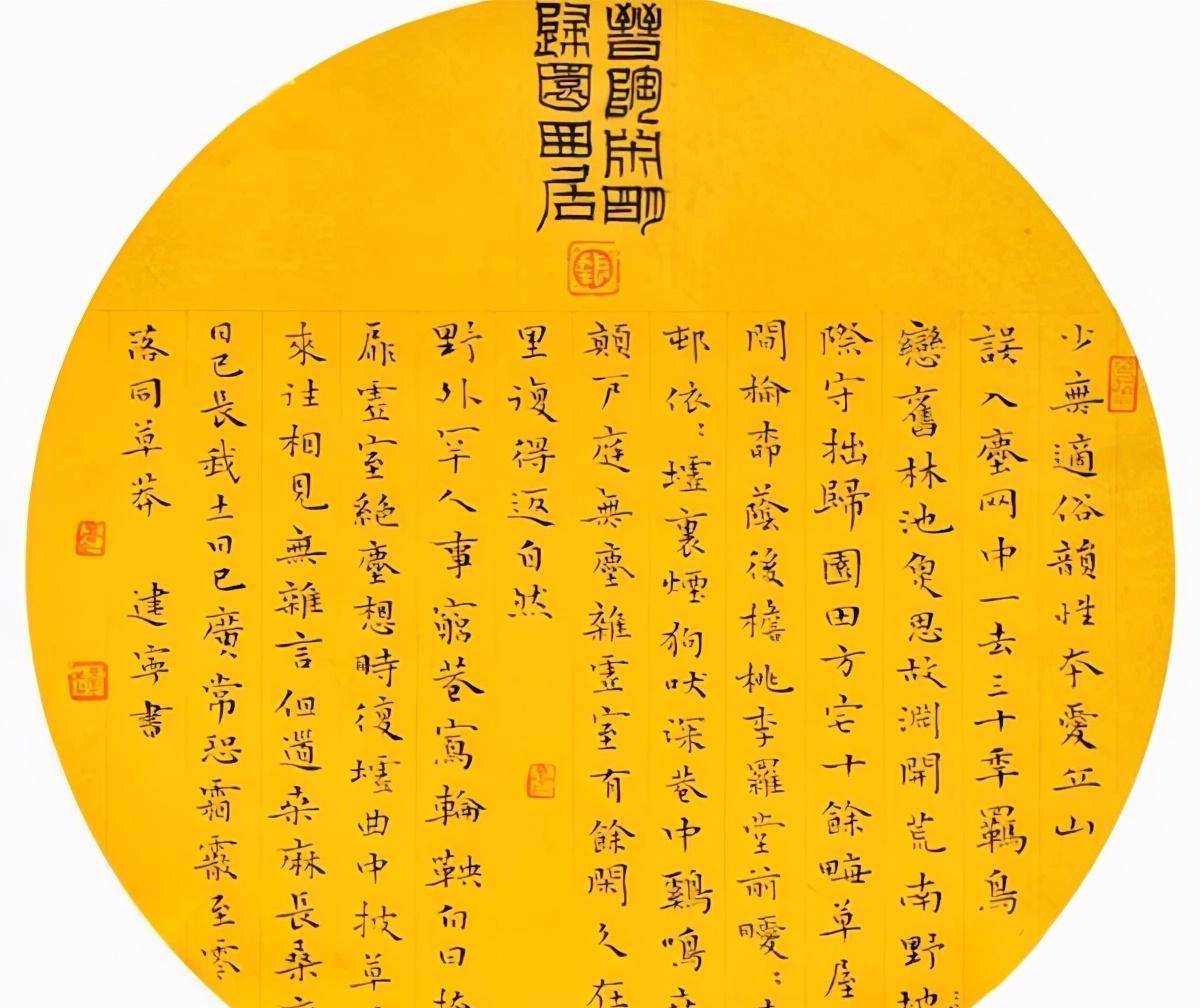 晉陶淵明
歸園田居
少無適俗韻性本愛丘山
誤入塵网中一去三十年羈鳥
戀舊林池魚思故淵開荒南野地
際守拙歸園田方宅十餘畮草屋
間榆柳蔭後檐桃李羅堂前曖:
邨依:墟裏煙狗吠深巷中鷄鳴桑
顛戶庭無塵雜虛室有餘閑久在
里復得返自然
野外罕人事窮巷寡輪鞅白日掩
扉虛室絕塵想時復墟曲中披草
來往相見無雜言但道桑麻長桑
日已長我土日已廣常恐霜霰至零
落同草莽 建寧書